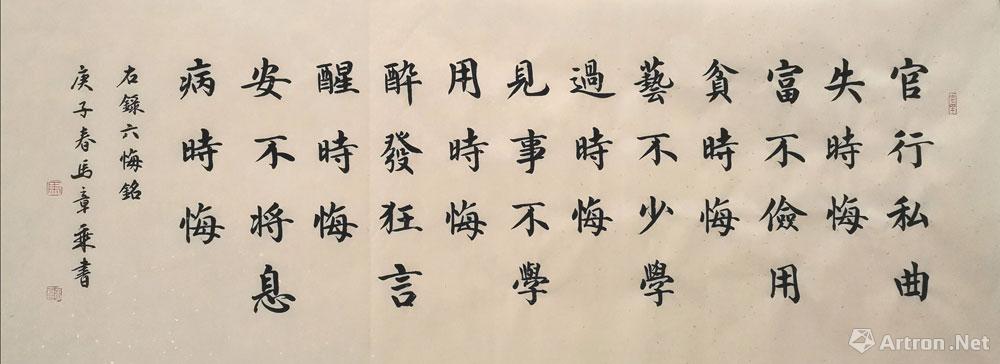 官行私曲
失時悔
富不儉用
貧時悔
藝不少學
過時悔
見事不學
用時悔
醉發狂言
醒時悔
安不将息
病時悔
右錄六悔銘
庚子春馬章乘書
Artron.Net